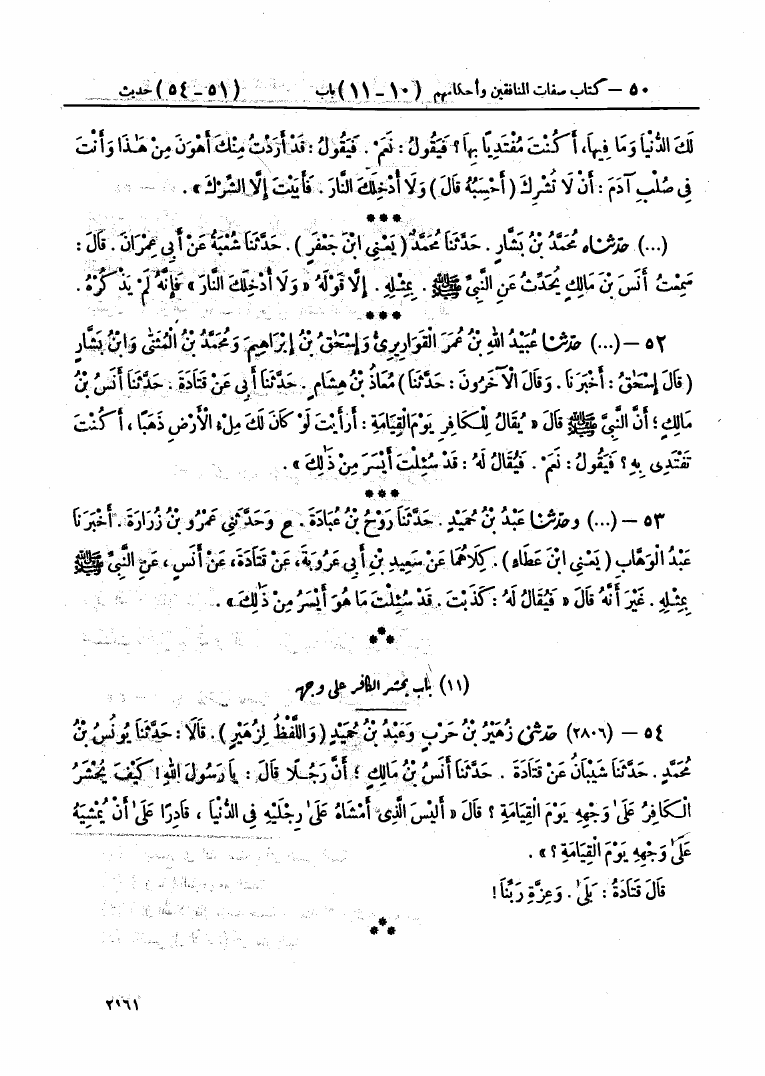 ٥٠ – كتاب صفات المنافقين وأحكامهم (١٠ – ١١) باب (٥١ – ٥٤) حديث
لَكَ الدُّنْيَا وَمَا فِيهَا، أَكُنْتَ مُفْتَدِيًا بِهَا؟ فَيَقُولُ: نَعَمْ. فَيَقُولُ: قَدْ أَرَدْتُ مِنْكَ أَهْوَنَ مِنْ هَٰذَا وَأَنْتَ
فِي صُلْبِ آدَمَ: أَنْ لَا تُشْرِكَ (أَحْسِبُهُ قَالَ) وَلَا أُدْخِلَكَ النَّارَ. فَأَبَيْتَ إِلَّا الشِّرْكَ».
***
(...) حَدَّثَنَاه مُحَمَّدُ بْنُ بَشَّارٍ. حَدَّثَنَا مُحَمَّدٌ (يَعْنِي ابْنَ جَعْفَرٍ). حَدَّثَنَا شُعْبَةُ عَنْ أَبِي عِمْرَانَ. قَالَ:
سَمِعْتُ أَنَسَ بْنَ مَالِكٍ يُحَدِّثُ عَنِ النَّبِيِّ ﷺ. بِمِثْلِهِ. إِلَّا قَوْلَهُ «وَلَا أُدْخِلَكَ النَّارَ» فَإِنَّهُ لَمْ يَذْكُرْهُ.
***
٥٢ – (...) حَدَّثَنَا عُبَيْدُ اللهِ بْنُ عُمَرَ الْقَوَارِيرِيُّ وَإِسْحَٰقُ بْنُ إِبْرَاهِيمَ وَمُحَمَّدُ بْنُ الْمُثَنَّىٰ وَابْنُ بَشَّارٍ
(قَالَ إِسْحَٰقُ: أَخْبَرَنَا. وَقَالَ الْآخَرُونَ: حَدَّثَنَا) مُعَاذُ بْنُ هِشَامٍ. حَدَّثَنَا أَبِي عَنْ قَتَادَةَ. حَدَّثَنَا أَنَسُ بْنُ
مَالِكٍ؛ أَنَّ النَّبِيَّ ﷺ قَالَ «يُقَالُ لِلْكَافِرِ يَوْمَ الْقِيَامَةِ: أَرَأَيْتَ لَوْ كَانَ لَكَ مِلْءُ الْأَرْضِ ذَهَبًا، أَكُنْتَ
تَفْتَدِي بِهِ؟ فَيَقُولُ: نَعَمْ. فَيُقَالُ لَهُ: قَدْ سُئِلْتَ أَيْسَرَ مِنْ ذَٰلِكَ».
***
٥٣ – (...) وحَدَّثَنَا عَبْدُ بْنُ حُمَيْدٍ. حَدَّثَنَا رَوْحُ بْنُ عُبَادَةَ. ح وَحَدَّثَنِي عَمْرُو بْنُ زُرَارَةَ. أَخْبَرَنَا
عَبْدُ الْوَهَّابِ (يَعْنِي ابْنَ عَطَاءٍ). كِلَاهُمَا عَنْ سَعِيدِ بْنِ أَبِي عَرُوبَةَ، عَنْ قَتَادَةَ، عَنْ أَنَسٍ، عَنِ النَّبِيِّ ﷺ
بِمِثْلِهِ. غَيْرَ أَنَّهُ قَالَ «فَيُقَالُ لَهُ: كَذَبْتَ. قَدْ سُئِلْتَ مَا هُوَ أَيْسَرُ مِنْ ذَٰلِكَ».
***
(١١) باب يحشر الكافر على وجهه
٥٤ – (٢٨٠٦) حَدَّثَنِي زُهَيْرُ بْنُ حَرْبٍ وَعَبْدُ بْنُ حُمَيْدٍ (وَاللَّفْظُ لِزُهَيْرٍ). قَالَا: حَدَّثَنَا يُونُسُ بْنُ
مُحَمَّدٍ. حَدَّثَنَا شَيْبَانُ عَنْ قَتَادَةَ. حَدَّثَنَا أَنَسُ بْنُ مَالِكٍ؛ أَنَّ رَجُلًا قَالَ: يَا رَسُولَ اللهِ! كَيْفَ يُحْشَرُ
الْكَافِرُ عَلَىٰ وَجْهِهِ يَوْمَ الْقِيَامَةِ؟ قَالَ «أَلَيْسَ الَّذِي أَمْشَاهُ عَلَىٰ رِجْلَيْهِ فِي الدُّنْيَا، قَادِرًا عَلَىٰ أَنْ يُمْشِيَهُ
عَلَىٰ وَجْهِهِ يَوْمَ الْقِيَامَةِ؟».
قَالَ قَتَادَةُ: بَلَىٰ. وَعِزَّةِ رَبِّنَا!
***
٢١٦١